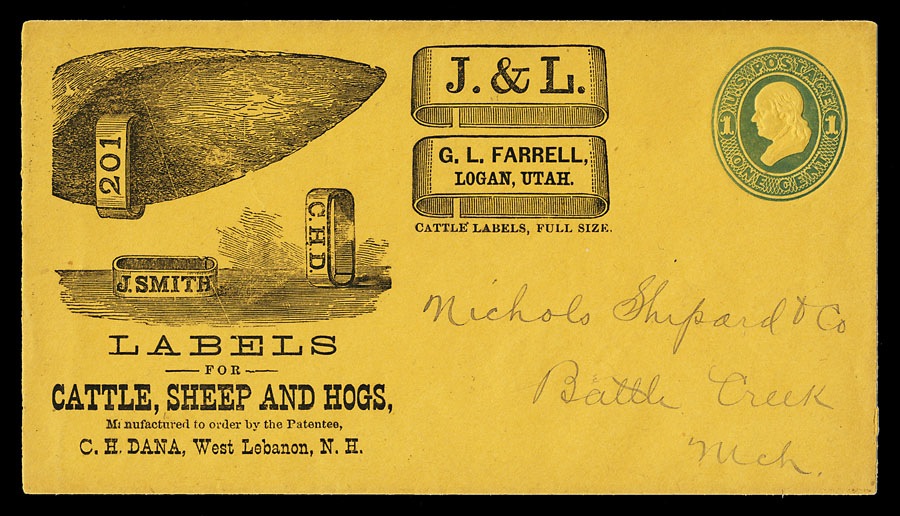 201
C.H.D.
J. SMITH
LABELS
FOR
CATTLE, SHEEP AND HOGS,
Manufactured to order by the Patentee,
C. H. DANA, West Lebanon, N. H.
J. & L.
G. L. FARRELL,
LOGAN, UTAH.
CATTLE LABELS, FULL SIZE.
U.S. POSTAGE
1 1
ONE CENT
Nichols Shepard & Co
Battle Creek
Mch.